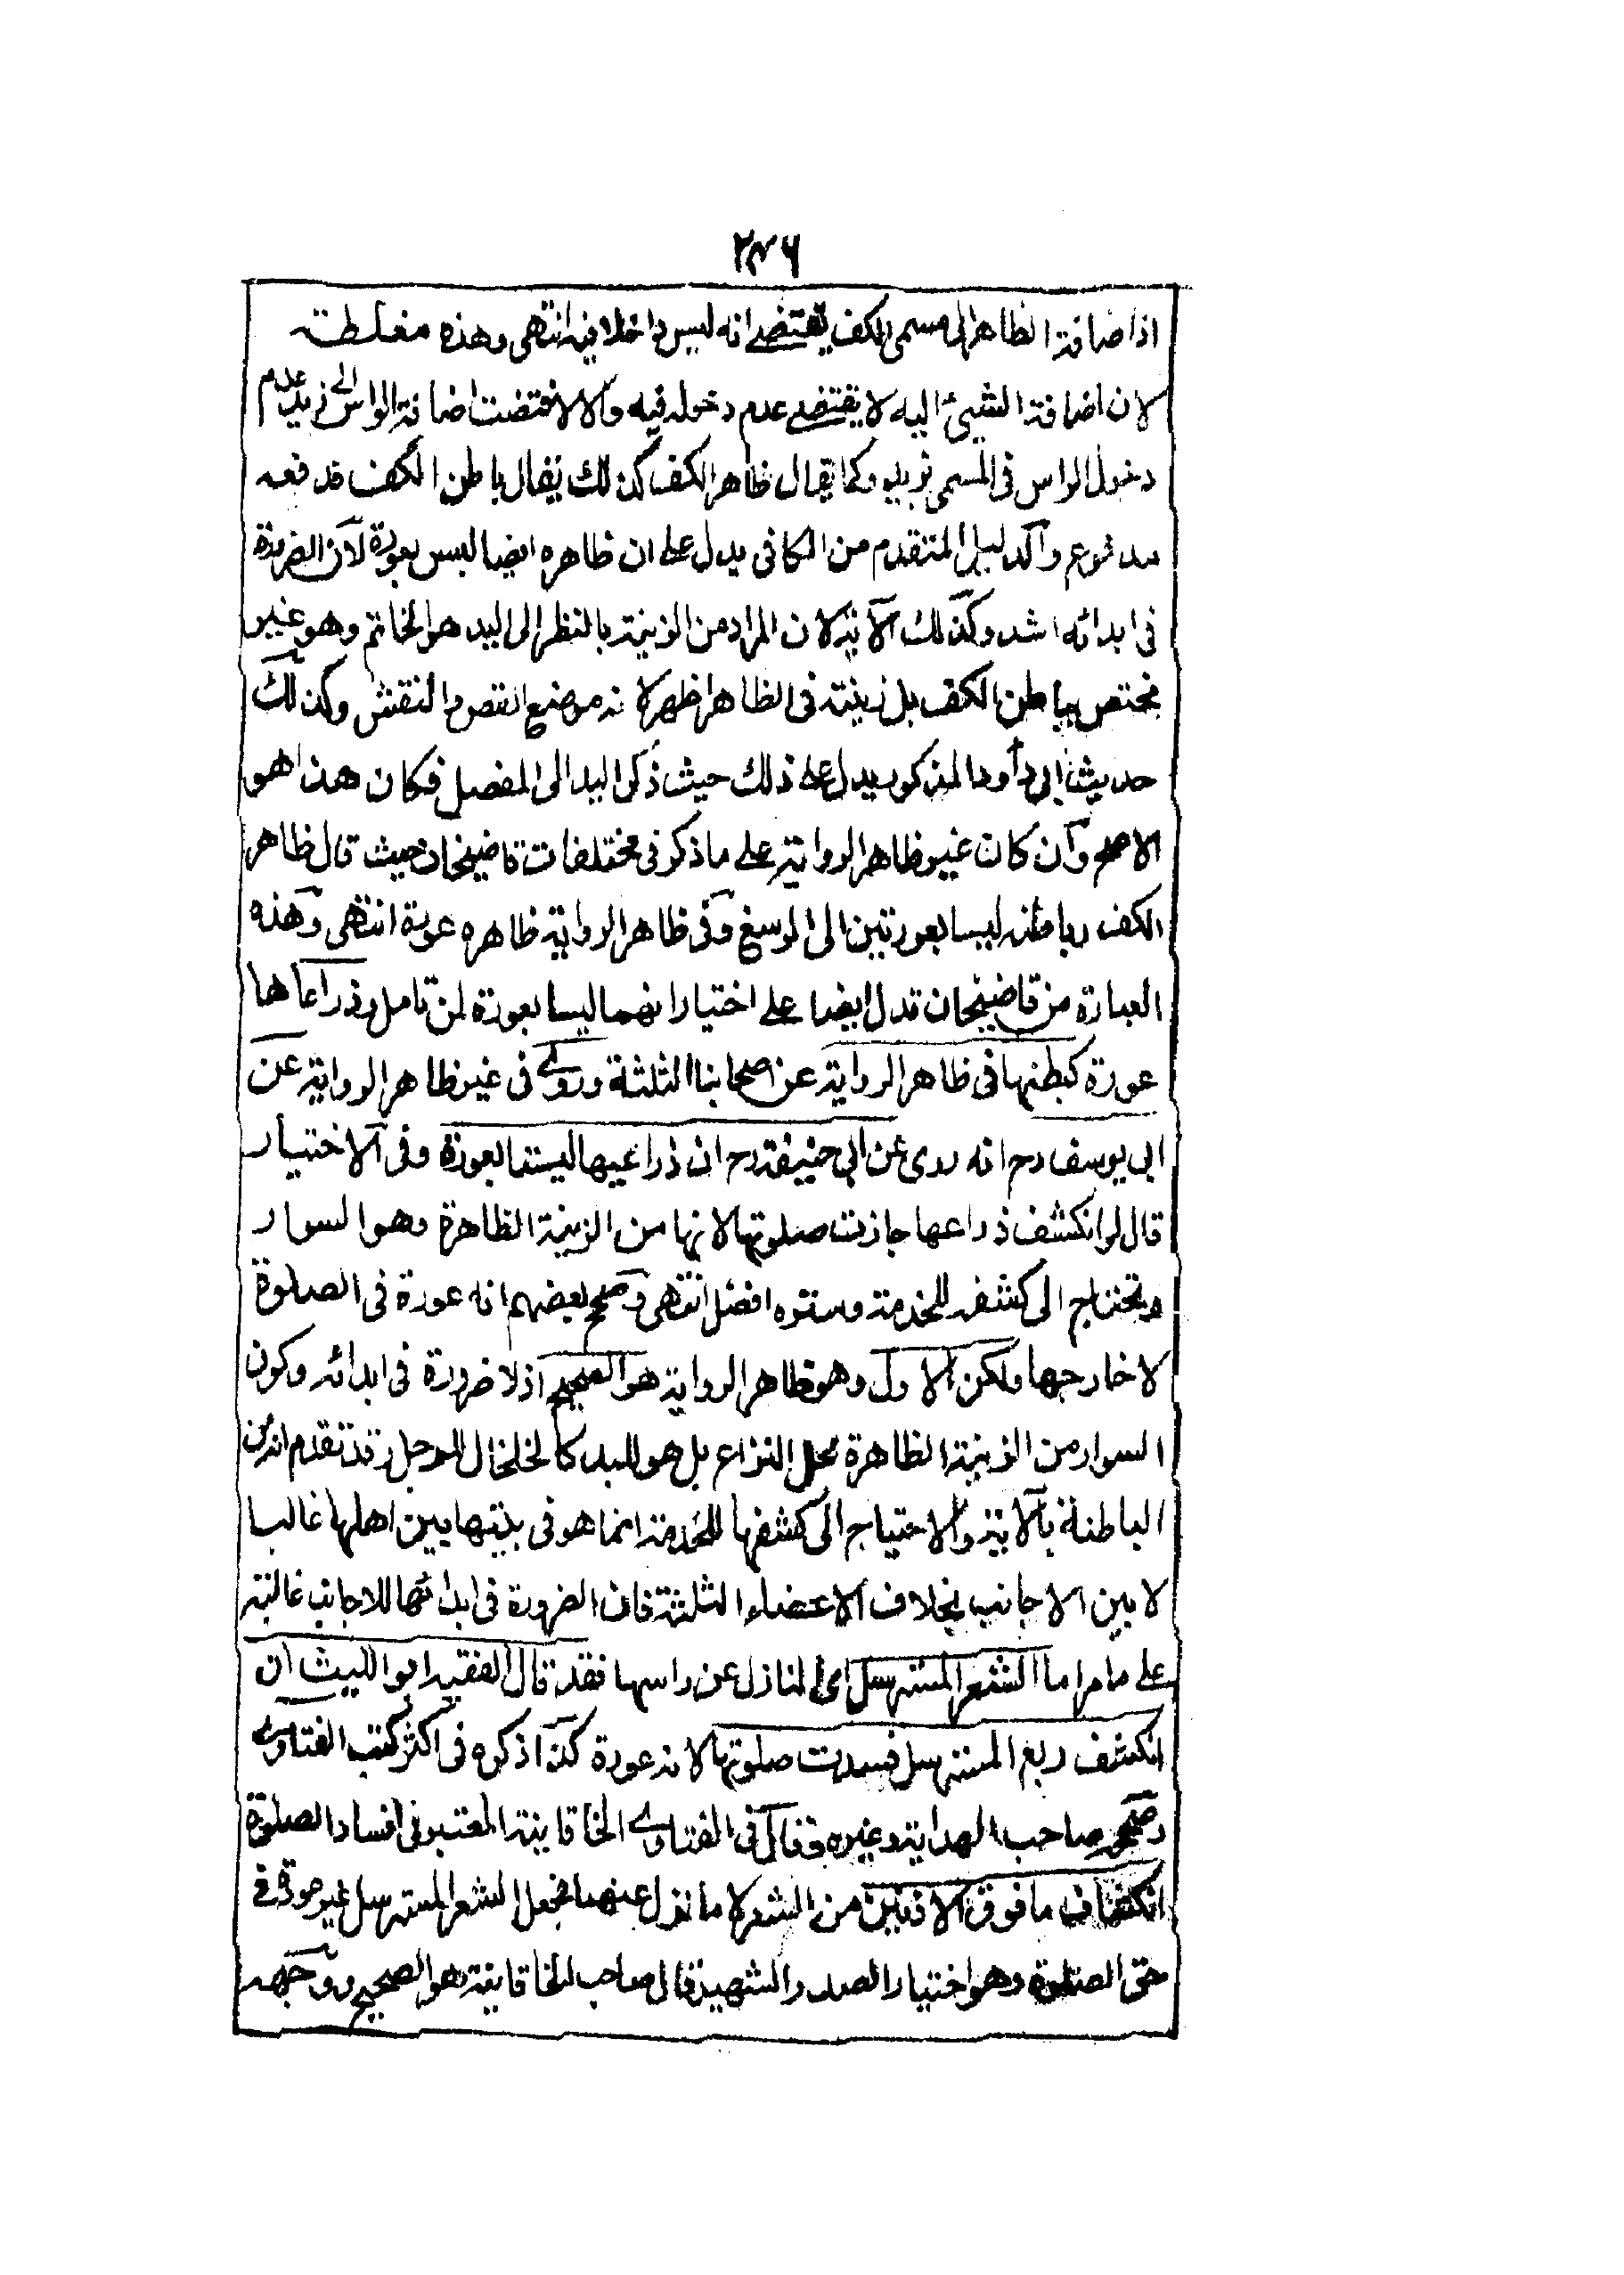 ٢٣٦
اذ اضافة الظاهر الى مسمى الكف يقتضى انه ليس داخلا فيه انتهى وهذه مغلطة
لان اضافة الشيئ اليه لا يقتضى عدم دخوله فيه والا لاقتضت اضافة الراس الى زيد عدم
دخول الراس فى المسمى بزيد وكما يقال ظاهر الكف كذلك يقال باطن الكف قد فعه
مدفوع والدليل المتقدم من الكافى يدل على ان ظاهره ايضا ليس بعورة لان الضرورة
فى ابدائه اشد وكذلك الآية لان المراد من الزينة بالنظر الى اليد هو الخاتم وهو غير
مختص بباطن الكف بل زينته فى الظاهر اظهر لانه موضع الفص والنقش وكذلك
حديث ابى داود المذكور يدل على ذلك حيث ذكر اليد الى المفصل فكان هذا هو
الاصح وان كان غير ظاهر الرواية على ما ذكر فى مختلفات قاضيخان حيث قال ظاهر
الكف وباطنه ليسا بعورتين الى الرسغ وفى ظاهر الرواية ظاهره عورة انتهى وهذه
العبارة من قاضيخان تدل ايضا على اختيار انهما ليسا بعورة لمن تامل وذراعاها
عورة كبطنها فى ظاهر الرواية عن اصحابنا الثلثة وروى فى غير ظاهر الرواية عن
ابى يوسف رح انه روى عن ابى حنيفة رح ان ذراعيها ليستا بعورة وفى الاختيار
قال لو انكشف ذراعها جازت صلوتها لانها من الزينة الظاهرة وهو السوار
وتحتاج الى كشفه للخدمة وستره افضل انتهى وصحح بعضهم انه عورة فى الصلوة
لا خارجها ولكن الاول وهو ظاهر الرواية هو الصحيح اذ لا ضرورة فى ابدائه وكون
السوار من الزينة الظاهرة محل النزاع بل هو لليد كالخلخال للرجل وقد تقدم انه من
الباطنة بالآية والاحتياج الى كشفها للخدمة انما هو فى بيتها بين اهلها غالبا
لا بين الاجانب بخلاف الاعضاء الثلثة فان الضرورة فى ابدائها للاجانب غالبة
على ما مر اما الشعر المسترسل اى النازل عن راسها فقد قال الفقيه ابو الليث ان
انكشف ربع المسترسل فسدت صلوتها لانه عورة كذا ذكره فى اكثر كتب الفتاوى
وصححه صاحب الهداية وغيره وقال فى الفتاوى الخاقانية المعتبر فى افساد الصلوة
انكشاف ما فوق الاذنين من الشعر لا ما نزل عنهما فجعل الشعر المسترسل غير عورة فى
حق الصلوة وهو اختيار الصدر الشهيد قال صاحب الخاقانية هو الصحيح ووجهه